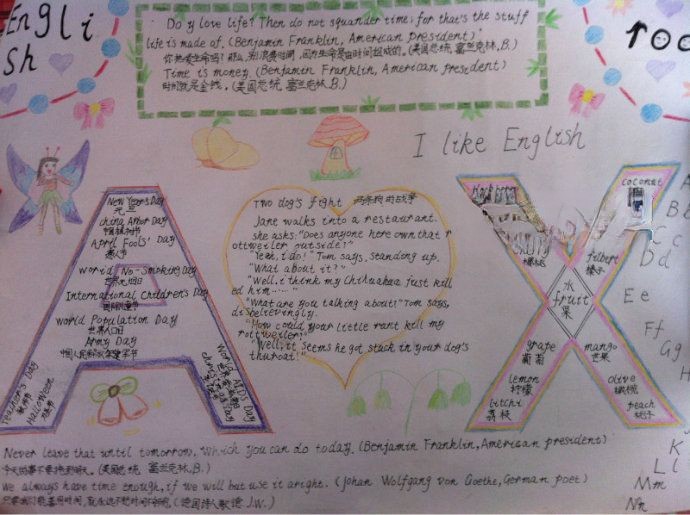 Engli
sh
Do y love life? Then do not squander time; for that's the stuff
life is made of. (Benjamin Franklin, American president)
你热爱生命吗? 那么, 别浪费时间, 因为生命是由时间组成的。(美国总统, 富兰克林.B.)
Time is money. (Benjamin Franklin, American president)
时间就是金钱。(美国总统, 富兰克林.B.)
I like English
New Year's Day
元旦
China Arbor Day
中国植树节
April Fools' Day
愚人节
World No-Smoking Day
世界无烟日
International Children's Day
国际儿童节
World Population Day
世界人口日
Army Day
Teacher's Day
教师节
Halloween
World AIDS Day
Two dog's fight 两条狗的战争
Jane walks into a restaurant.
she asks: "Does anyone here own that r
ottweiler outside?"
"Yeah, I do!" Tom says, standong up.
"What about it?"
"Well, i think my Chihuahua just kill
ed him......
"What are you talking about!" Tom says,
disbelievingly.
"How could your little runt kill my
rottweiler?"
"Well, it seems he got stuck in your dog's
thuroat!"
coconut
filbert
榛子
水
fruit
果
grape
葡萄
mango
芒果
lemon
柠檬
olive
橄榄
litchi
荔枝
peach
桃子
B b
C c
D d
E e
F f
G g
H
K
L l
M m
N n
Never leave that until tomorrow, which you can do today. (Benjamin Franklin, American president)
(美国总统, 富兰克林.B.)
We always have time enough, if we will but use it aright. (Johan Wolfgang von Goethe, German poet)
(德国诗人歌德 J.W.)